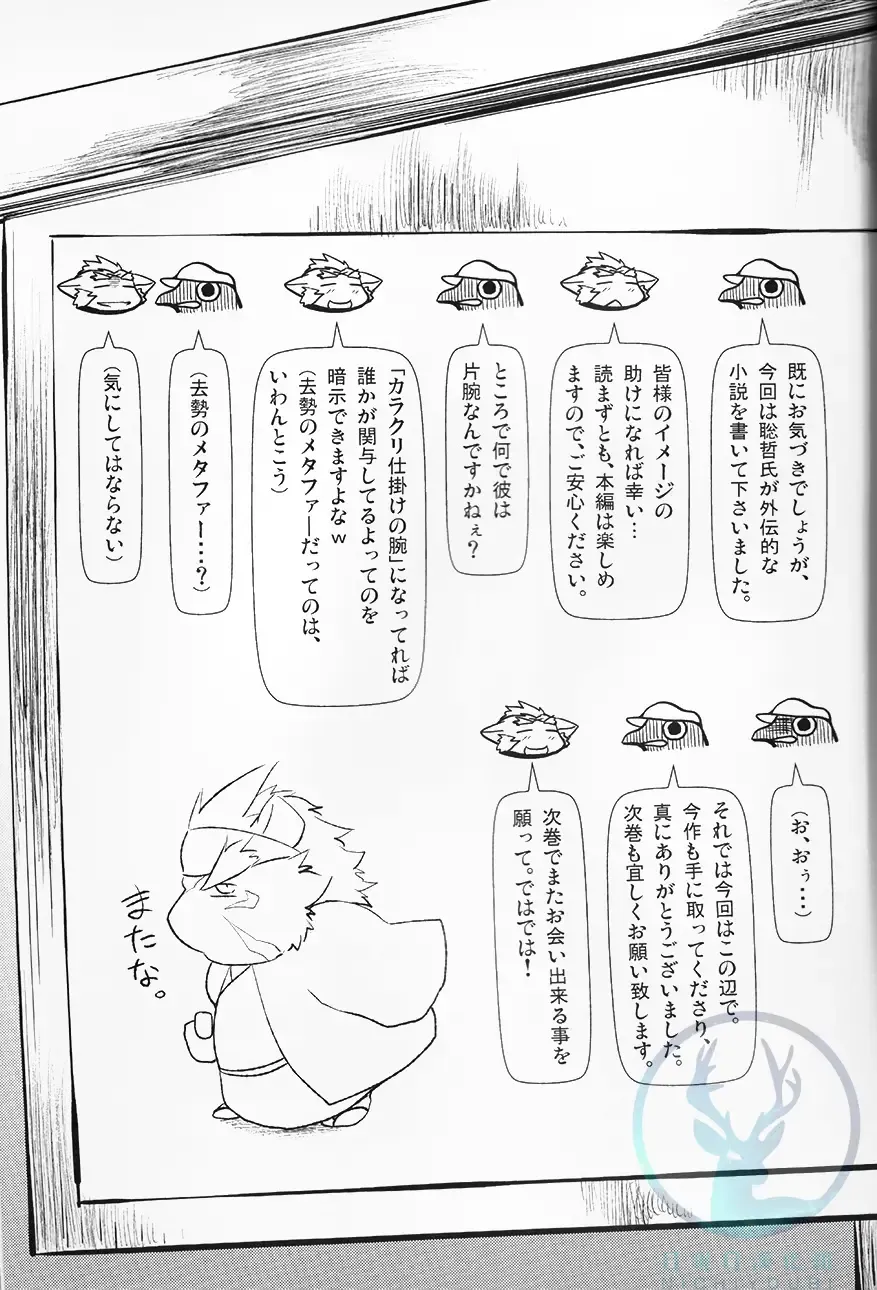 既にお気づきでしょうが、
今回は聡哲氏が外伝的な
小説を書いて下さいました。
皆様のイメージの
助けになれば幸い…
読まずとも、本編は楽しめ
ますので、ご安心ください。
ところで何で彼は
片腕なんですかねぇ？
「カラクリ仕掛けの腕」になってれば
誰かが関与してるよってのを
暗示できますよなｗ
（去勢のメタファーだってのは、
いわんとこう）
（去勢のメタファー・・・？）
（気にしてはならない）
（お、おぅ・・・）
それでは今回はこの辺で。
今作も手に取ってくださり、
真にありがとうございました。
次巻も宜しくお願い致します。
次巻でまたお会い出来る事を
願って。ではでは！
またな。